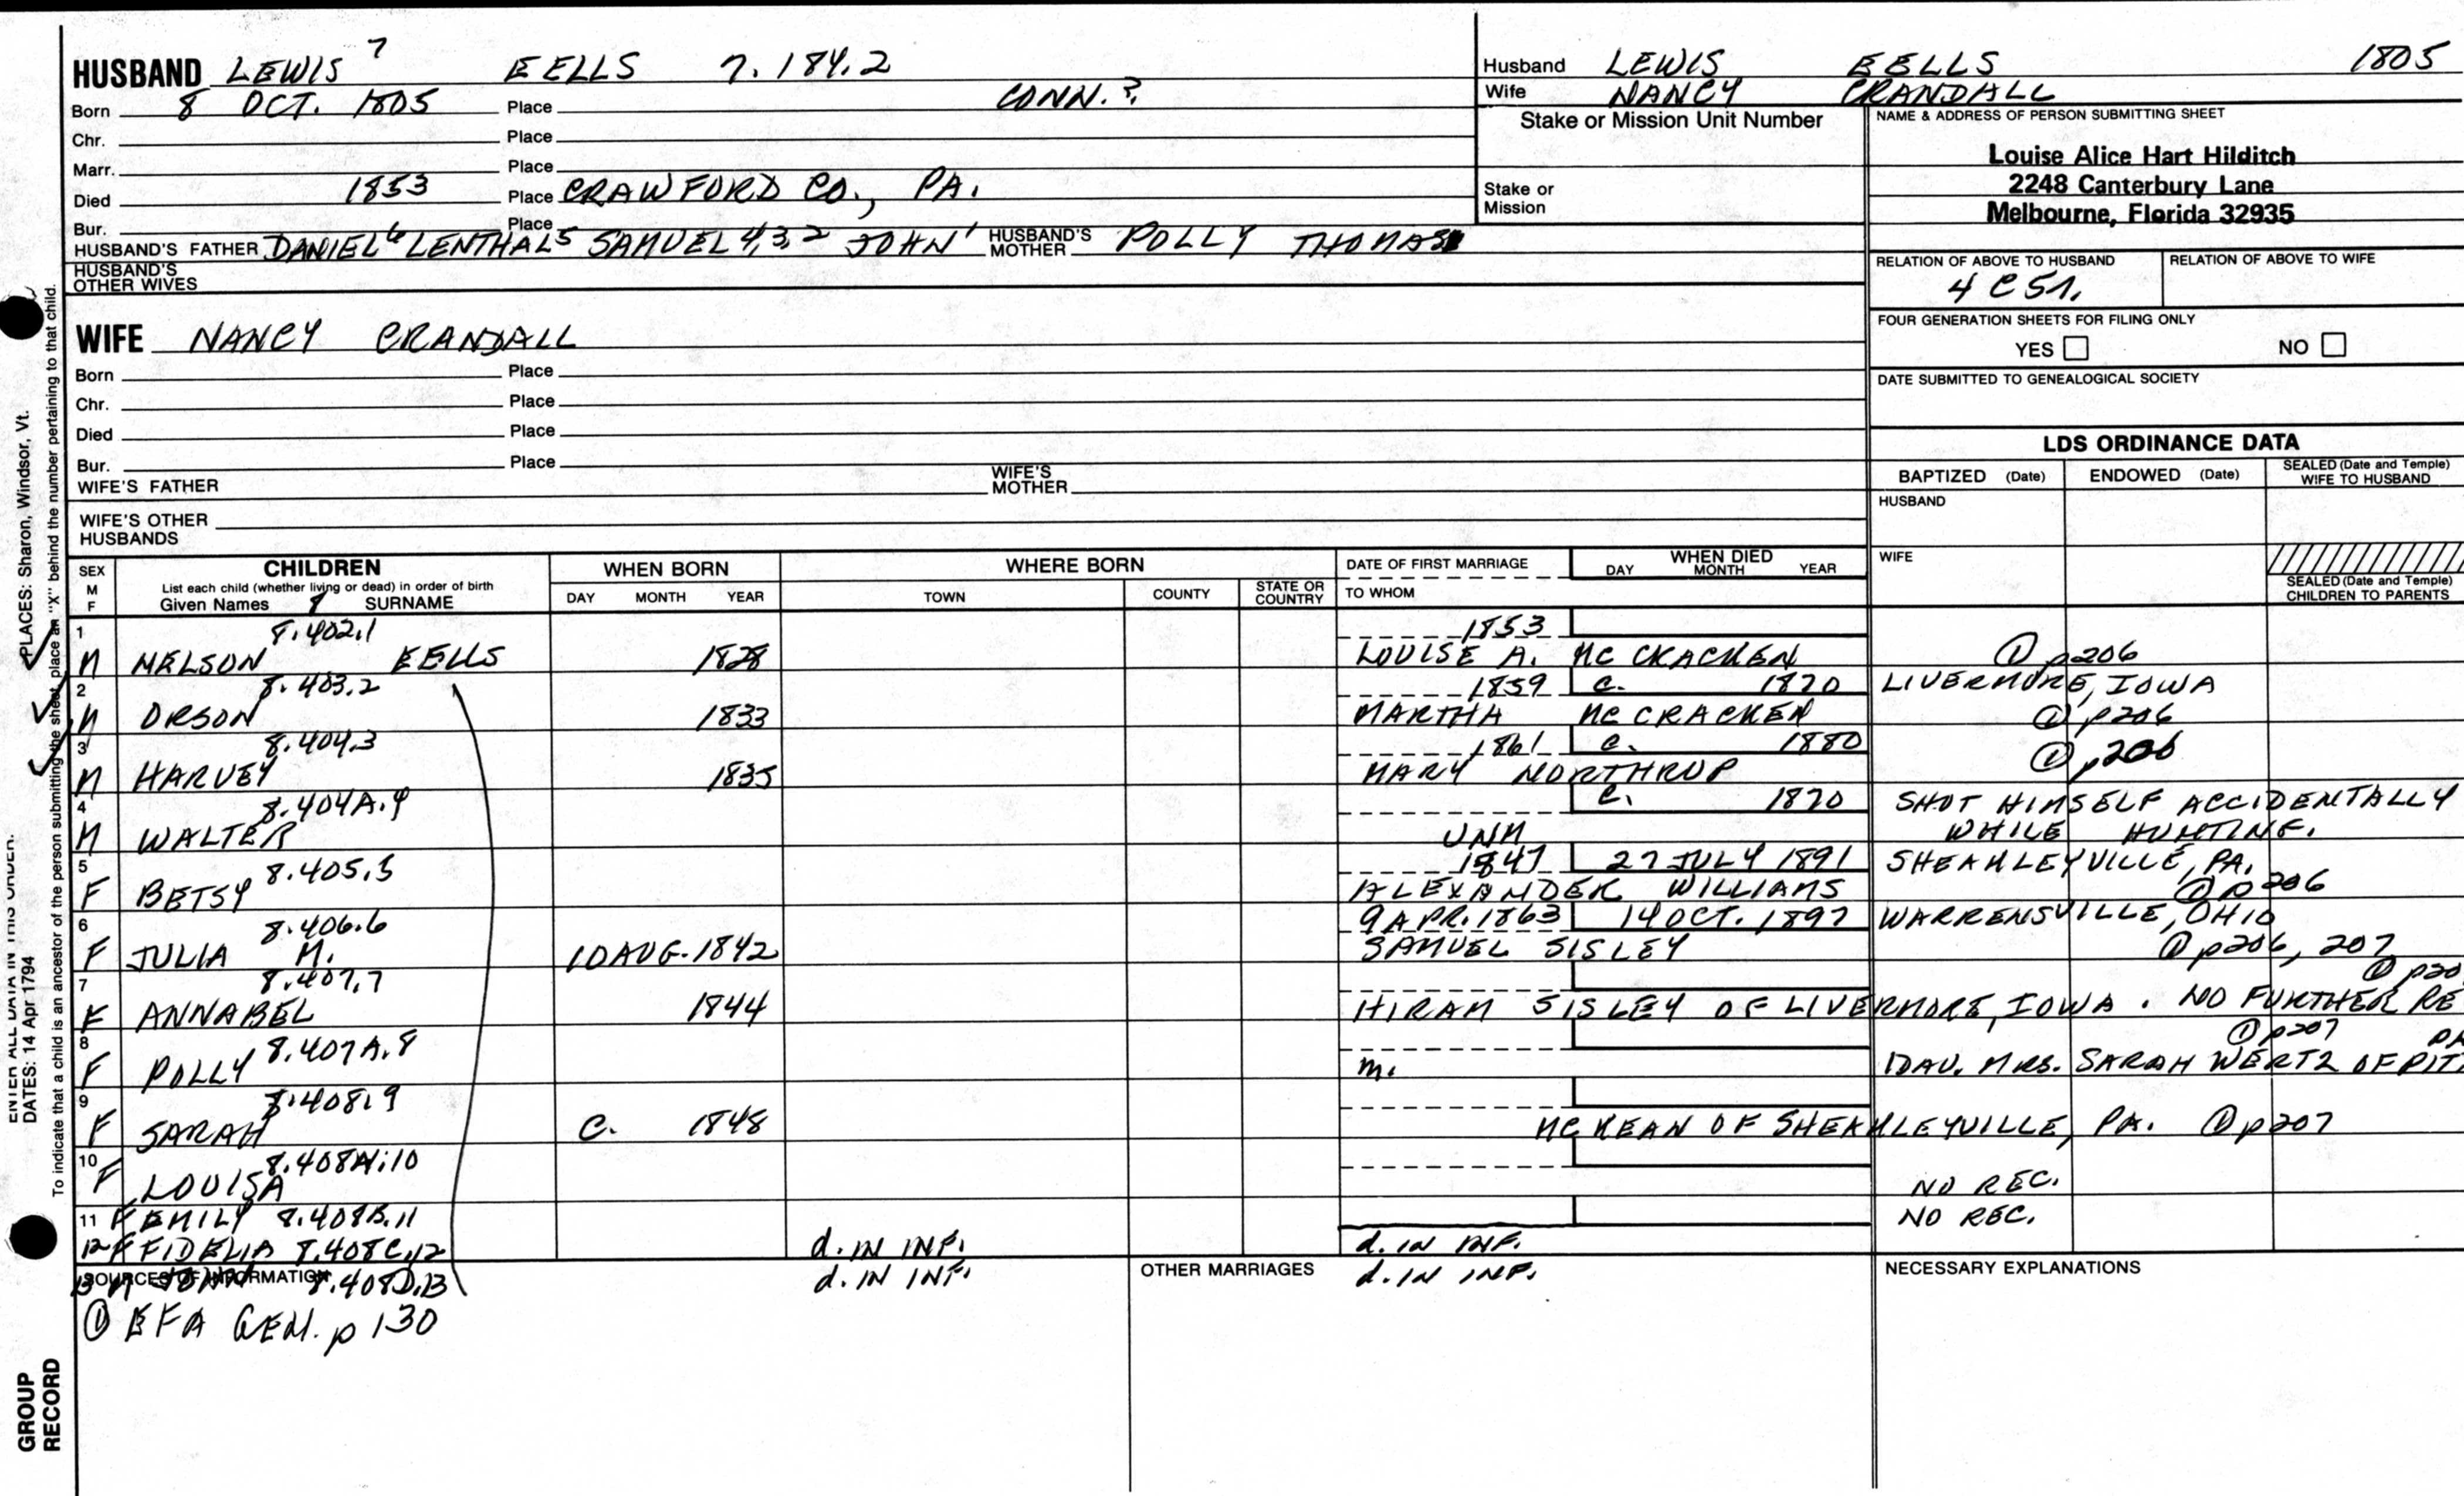 HUSBAND LEWIS 7 EELLS 7.184.2
Born 8 OCT. 1805 Place CONN.?
Chr. Place
Marr. Place
Died 1853 Place CRAWFORD CO., PA.
Bur. Place
HUSBAND'S FATHER DANIEL 6 LENTHAL 5 SAMUEL 4,3,2 JOHN 1 HUSBAND'S MOTHER POLLY THOMAS
HUSBAND'S OTHER WIVES
Husband LEWIS EELLS 1805
Wife NANCY CRANDALL
Stake or Mission Unit Number
Stake or Mission
NAME & ADDRESS OF PERSON SUBMITTING SHEET
Louise Alice Hart Hilditch
2248 Canterbury Lane
Melbourne, Florida 32935
RELATION OF ABOVE TO HUSBAND RELATION OF ABOVE TO WIFE
4 C 5
FOUR GENERATION SHEETS FOR FILING ONLY
YES NO
DATE SUBMITTED TO GENEALOGICAL SOCIETY
WIFE NANCY CRANDALL
Born Place
Chr. Place
Died Place
Bur. Place
WIFE'S FATHER WIFE'S MOTHER
WIFE'S OTHER HUSBANDS
LDS ORDINANCE DATA
BAPTIZED (Date) ENDOWED (Date) SEALED (Date and Temple) WIFE TO HUSBAND
HUSBAND
WIFE
SEALED (Date and Temple) CHILDREN TO PARENTS
SEX M F CHILDREN WHEN BORN WHERE BORN DATE OF FIRST MARRIAGE WHEN DIED
List each child (whether living or dead) in order of birth
Given Names 8 SURNAME DAY MONTH YEAR TOWN COUNTY STATE OR COUNTRY TO WHOM DAY MONTH YEAR
1 8.402.1 1853
M NELSON EELLS 1828 LOUISE A. MC CRACKEN ① p206
2 8.403.2 1859 C. 1870 LIVERMORE, IOWA
M ORSON 1833 MARTHA MC CRACKEN ① p206
3 8.404.3 1861 C. 1880 ① p206
M HARVEY 1835 MARY NORTHROP
4 8.404A.4 C. 1870 SHOT HIMSELF ACCIDENTALLY
M WALTER UNM WHILE HUNTING.
5 8.405.5 1847 27 JULY 1891 SHEAKLEYVILLE, PA.
F BETSY ALEXANDER WILLIAMS ① p206
6 8.406.6 9 APR. 1863 14 OCT. 1897 WARRENSVILLE, OHIO
F JULIA M. 10 AUG. 1842 SAMUEL SISLEY ① p206, 207
7 8.407.7 ① p20
F ANNABEL 1844 HIRAM SISLEY OF LIVERMORE, IOWA. NO FURTHER RE
8 8.407A.8 ① p207 PA
F POLLY m. DAU. MRS. SARAH WERTZ OF PIT
9 8.408.9
F SARAH C. 1848 MC KEAN OF SHEAKLEYVILLE, PA. ① p207
10 8.408A.10
F LOUISA NO REC.
11 F EMILY 8.408B.11 NO REC.
12 F FIDELIA 8.408C.12 d. IN INF. d. IN INF.
13 M JOHN 8.408D.13 d. IN INF. d. IN INF.
SOURCES OF INFORMATION OTHER MARRIAGES NECESSARY EXPLANATIONS
① EFA GEN. p 130
ENTER ALL DATA IN THIS ORDER:
DATES: 14 Apr 1794
PLACES: Sharon, Windsor, Vt.
To indicate that a child is an ancestor of the person submitting the sheet, place an "X" behind the number pertaining to that child.
GROUP
RECORD